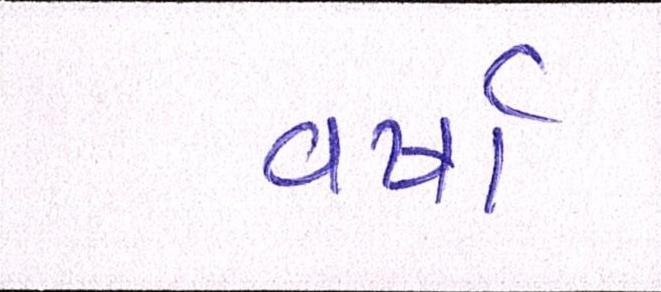 વર્ષા